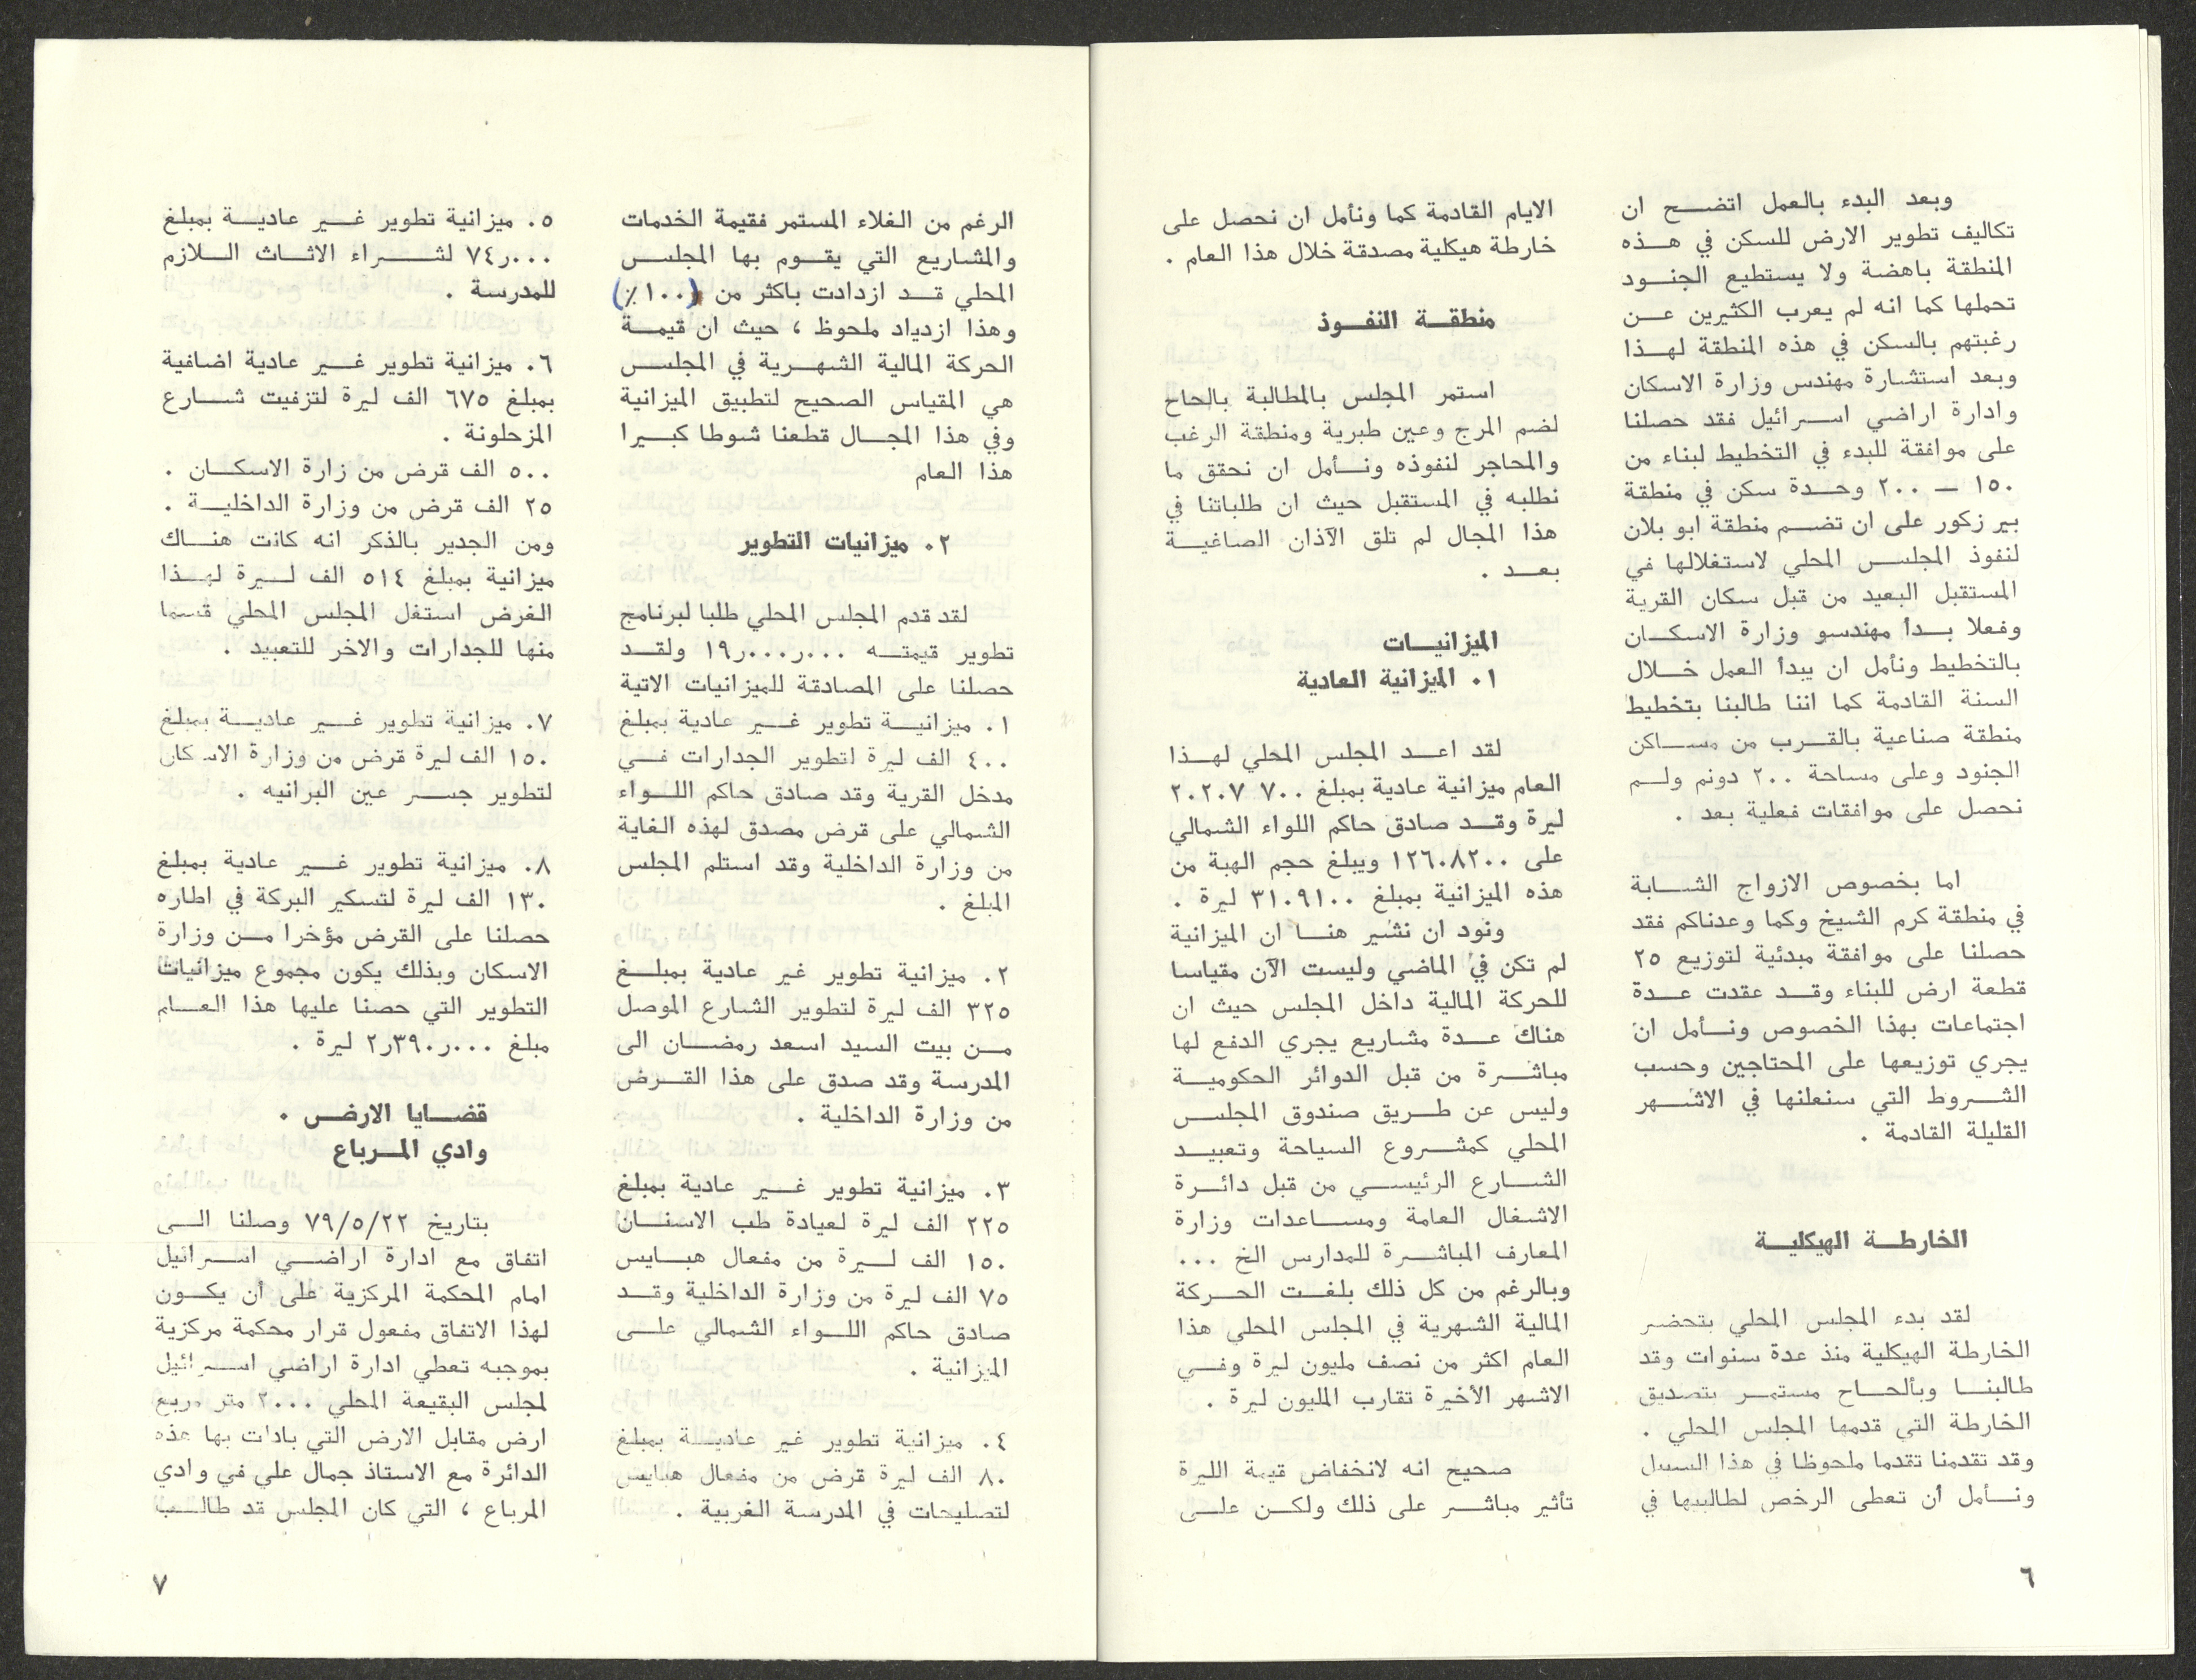 وبعد البدء بالعمل اتضح ان
تكاليف تطوير الارض للسكن في هذه
المنطقة باهضة ولا يستطيع الجنود
تحملها كما انه لم يعرب الكثيرين عن
رغبتهم بالسكن في هذه المنطقة لهذا
وبعد استشارة مهندس وزارة الاسكان
وادارة اراضي اسرائيل فقد حصلنا
على موافقة للبدء في التخطيط لبناء من
١٥٠ — ٢٠٠ وحدة سكن في منطقة
بير زكور على ان تضم منطقة ابو بلان
لنفوذ المجلس المحلي لاستغلالها في
المستقبل البعيد من قبل سكان القرية
وفعلا بدأ مهندسو وزارة الاسكان
بالتخطيط ونأمل ان يبدأ العمل خلال
السنة القادمة كما اننا طالبنا بتخطيط
منطقة صناعية بالقرب من مساكن
الجنود وعلى مساحة ٢٠٠ دونم ولم
نحصل على موافقات فعلية بعد .
اما بخصوص الازواج الشابة
في منطقة كرم الشيخ وكما وعدناكم فقد
حصلنا على موافقة مبدئية لتوزيع ٢٥
قطعة ارض للبناء وقد عقدت عدة
اجتماعات بهذا الخصوص ونأمل ان
يجري توزيعها على المحتاجين وحسب
الشروط التي سنعلنها في الاشهر
القليلة القادمة .
الخارطة الهيكلية
لقد بدء المجلس المحلي بتحضير
الخارطة الهيكلية منذ عدة سنوات وقد
طالبنا وبألحاح مستمر بتصديق
الخارطة التي قدمها المجلس المحلي .
وقد تقدمنا تقدما ملحوظا في هذا السبيل
ونأمل أن تعطى الرخص لطالبيها في
الايام القادمة كما ونأمل ان نحصل على
خارطة هيكلية مصدقة خلال هذا العام .
منطقة النفوذ
استمر المجلس بالمطالبة بالحاح
لضم المرج وعين طبرية ومنطقة الرغب
والمحاجر لنفوذه ونأمل ان نحقق ما
نطلبه في المستقبل حيث ان طلباتنا في
هذا المجال لم تلق الآذان الصاغية
بعد .
الميزانيات
١. الميزانية العادية
لقد اعد المجلس المحلي لهذا
العام ميزانية عادية بمبلغ ٧٠٠ ٢٠٢٠٧
ليرة وقد صادق حاكم اللواء الشمالي
على ١٢٦٠٨٢٠٠ ويبلغ حجم الهبة من
هذه الميزانية بمبلغ ٣١٠٩١٠٠ ليرة .
ونود ان نشير هنا ان الميزانية
لم تكن في الماضي وليست الآن مقياسا
للحركة المالية داخل المجلس حيث ان
هناك عدة مشاريع يجري الدفع لها
مباشرة من قبل الدوائر الحكومية
وليس عن طريق صندوق المجلس
المحلي كمشروع السياحة وتعبيد
الشارع الرئيسي من قبل دائرة
الاشغال العامة ومساعدات وزارة
المعارف المباشرة للمدارس الخ ...
وبالرغم من كل ذلك بلغت الحركة
المالية الشهرية في المجلس المحلي هذا
العام اكثر من نصف مليون ليرة وفي
الاشهر الأخيرة تقارب المليون ليرة .
صحيح انه لانخفاض قيمة الليرة
تأثير مباشر على ذلك ولكن على
٦
الرغم من الغلاء المستمر فقيمة الخدمات
والمشاريع التي يقوم بها المجلس
المحلي قد ازدادت باكثر من (١٠٠٪)
وهذا ازدياد ملحوظ ، حيث ان قيمة
الحركة المالية الشهرية في المجلس
هي المقياس الصحيح لتطبيق الميزانية
وفي هذا المجال قطعنا شوطا كبيرا
هذا العام
٢. ميزانيات التطوير
لقد قدم المجلس المحلي طلبا لبرنامج
تطوير قيمته ١٩ر٠٠٠ر٠٠٠ ولقد
حصلنا على المصادقة للميزانيات الاتية
١. ميزانية تطوير غير عادية بمبلغ
٤٠٠ الف ليرة لتطوير الجدارات في
مدخل القرية وقد صادق حاكم اللواء
الشمالي على قرض مصدق لهذه الغاية
من وزارة الداخلية وقد استلم المجلس
المبلغ .
٢. ميزانية تطوير غير عادية بمبلغ
٣٢٥ الف ليرة لتطوير الشارع الموصل
من بيت السيد اسعد رمضان الى
المدرسة وقد صدق على هذا القرض
من وزارة الداخلية .
٣. ميزانية تطوير غير عادية بمبلغ
٢٢٥ الف ليرة لعيادة طب الاسنان
١٥٠ الف ليرة من مفعال هبايس
٧٥ الف ليرة من وزارة الداخلية وقد
صادق حاكم اللواء الشمالي على
الميزانية .
٤. ميزانية تطوير غير عادية بمبلغ
٨٠ الف ليرة قرض من مفعال هبايس
لتصليحات في المدرسة الغربية .
٥. ميزانية تطوير غير عادية بمبلغ
٧٤ر٠٠٠ لشراء الاثاث اللازم
للمدرسة .
٦. ميزانية تطوير غير عادية اضافية
بمبلغ ٦٧٥ الف ليرة لتزفيت شارع
المزحلونة .
٥٠٠ الف قرض من زارة الاسكان .
٢٥ الف قرض من وزارة الداخلية .
ومن الجدير بالذكر انه كانت هناك
ميزانية بمبلغ ٥١٤ الف ليرة لهذا
الغرض استغل المجلس المحلي قسما
منها للجدارات والاخر للتعبيد .
٧. ميزانية تطوير غير عادية بمبلغ
١٥٠ الف ليرة قرض من وزارة الاسكان
لتطوير جسر عين البرانيه .
٨. ميزانية تطوير غير عادية بمبلغ
١٣٠ الف ليرة لتسكير البركة في اطاره
حصلنا على القرض مؤخرا من وزارة
الاسكان وبذلك يكون مجموع ميزانيات
التطوير التي حصنا عليها هذا العام
مبلغ ٢ر٣٩٠ر٠٠٠ ليرة .
قضايا الارض .
وادي المرباع
بتاريخ ٧٩/٥/٢٢ وصلنا الى
اتفاق مع ادارة اراضي اسرائيل
امام المحكمة المركزية على أن يكون
لهذا الاتفاق مفعول قرار محكمة مركزية
بموجبه تعطي ادارة اراضي اسرائيل
لمجلس البقيعة المحلي ٢٠٠٠ متر مربع
ارض مقابل الارض التي بادلت بها هذه
الدائرة مع الاستاذ جمال علي في وادي
المرباع ، التي كان المجلس قد طالب
٧